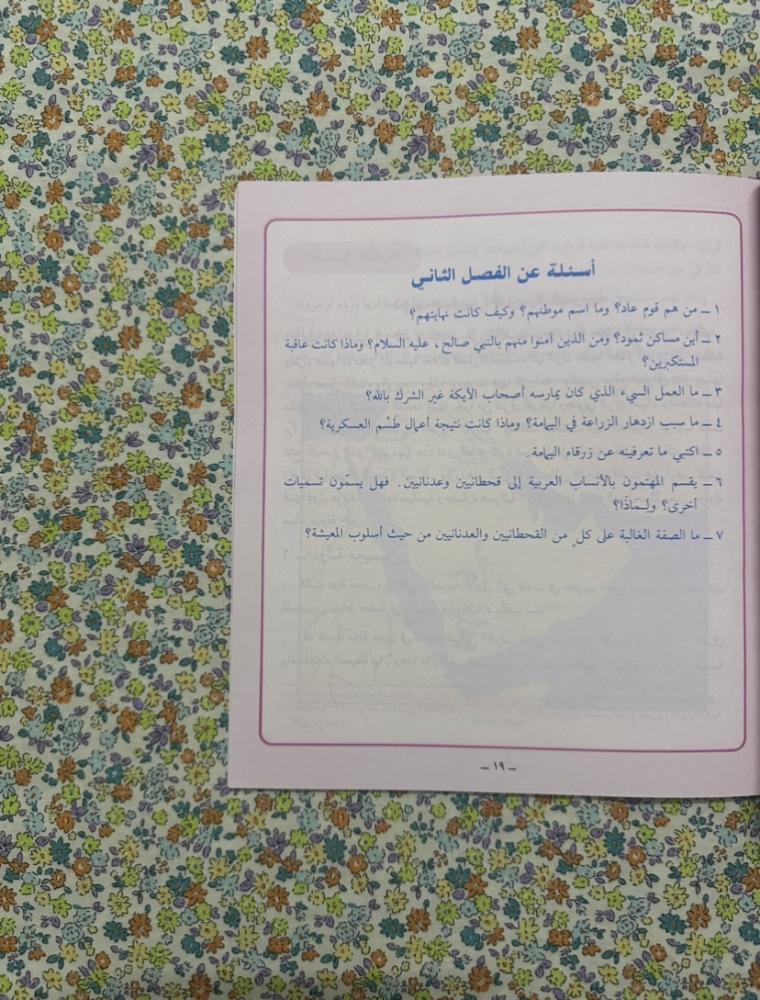 أسئلة عن الفصل الثاني
١ ــ من هم قوم عاد؟ وما اسم موطنهم؟ وكيف كانت نهايتهم؟
٢ ــ أين مساكن ثمود؟ ومن الذين آمنوا منهم بالنبي صالح ، عليه السلام؟ وماذا كانت عاقبة
المستكبرين؟
٣ ــ ما العمل السيء الذي كان يمارسه أصحاب الأيكة غير الشرك بالله؟
٤ ــ ما سبب ازدهار الزراعة في اليمامة؟ وماذا كانت نتيجة أعمال طَسْم العسكرية؟
٥ ــ اكتبي ما تعرفينه عن زرقاء اليمامة.
٦ ــ يقسم المهتمون بالأنساب العربية إلى قحطانيين وعدنانيين. فهل يسمّون تسميات
أخرى؟ ولـمَاذَا؟
٧ ــ ما الصفة الغالبة على كلٍ من القحطانيين والعدنانيين من حيث أسلوب المعيشة؟
ــ ١٩ ــ